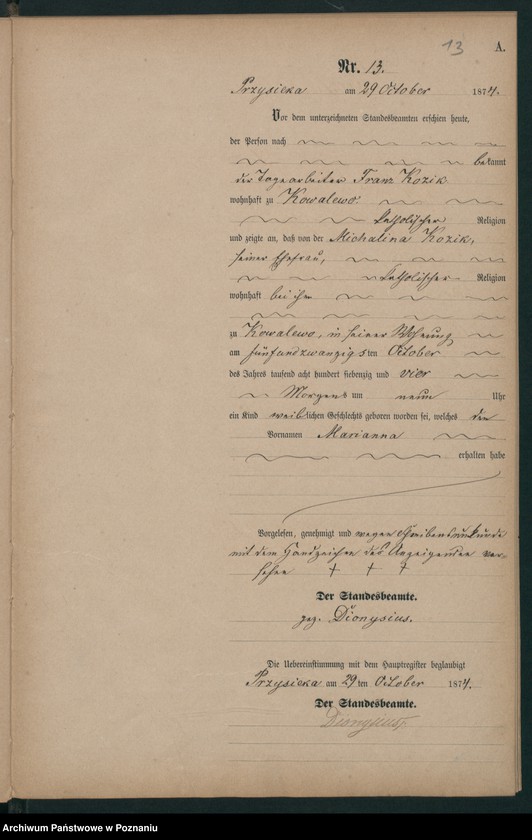 13
A.
Nr. 13.
Przysieka am 29 October 1874.
Vor dem unterzeichneten Standesbeamten erschien heute,
der Person nach
bekannt
der Tagearbeiter Franz Kozik
wohnhaft zu Kowalewo
katholischer Religion
und zeigte an, daß von der Michalina Kozik,
seiner Ehefrau,
katholischer Religion
wohnhaft bei ihm
zu Kowalewo, in seiner Wohnung
am fünfundzwanzigsten October
des Jahres tausend acht hundert siebenzig und vier
Morgens um neun Uhr
ein Kind weiblichen Geschlechts geboren worden sei, welches den
Vornamen Marianna
erhalten habe
Vorgelesen, genehmigt und wegen Schreibensunkunde
mit dem Handzeichen des Anzeigenden ver-
sehen + + +
Der Standesbeamte.
gez. Dionysius.
Die Uebereinstimmung mit dem Hauptregister beglaubigt
Przysieka am 29 ten October 1874.
Der Standesbeamte.
Dionysius.
Archiwum Państwowe w Poznaniu